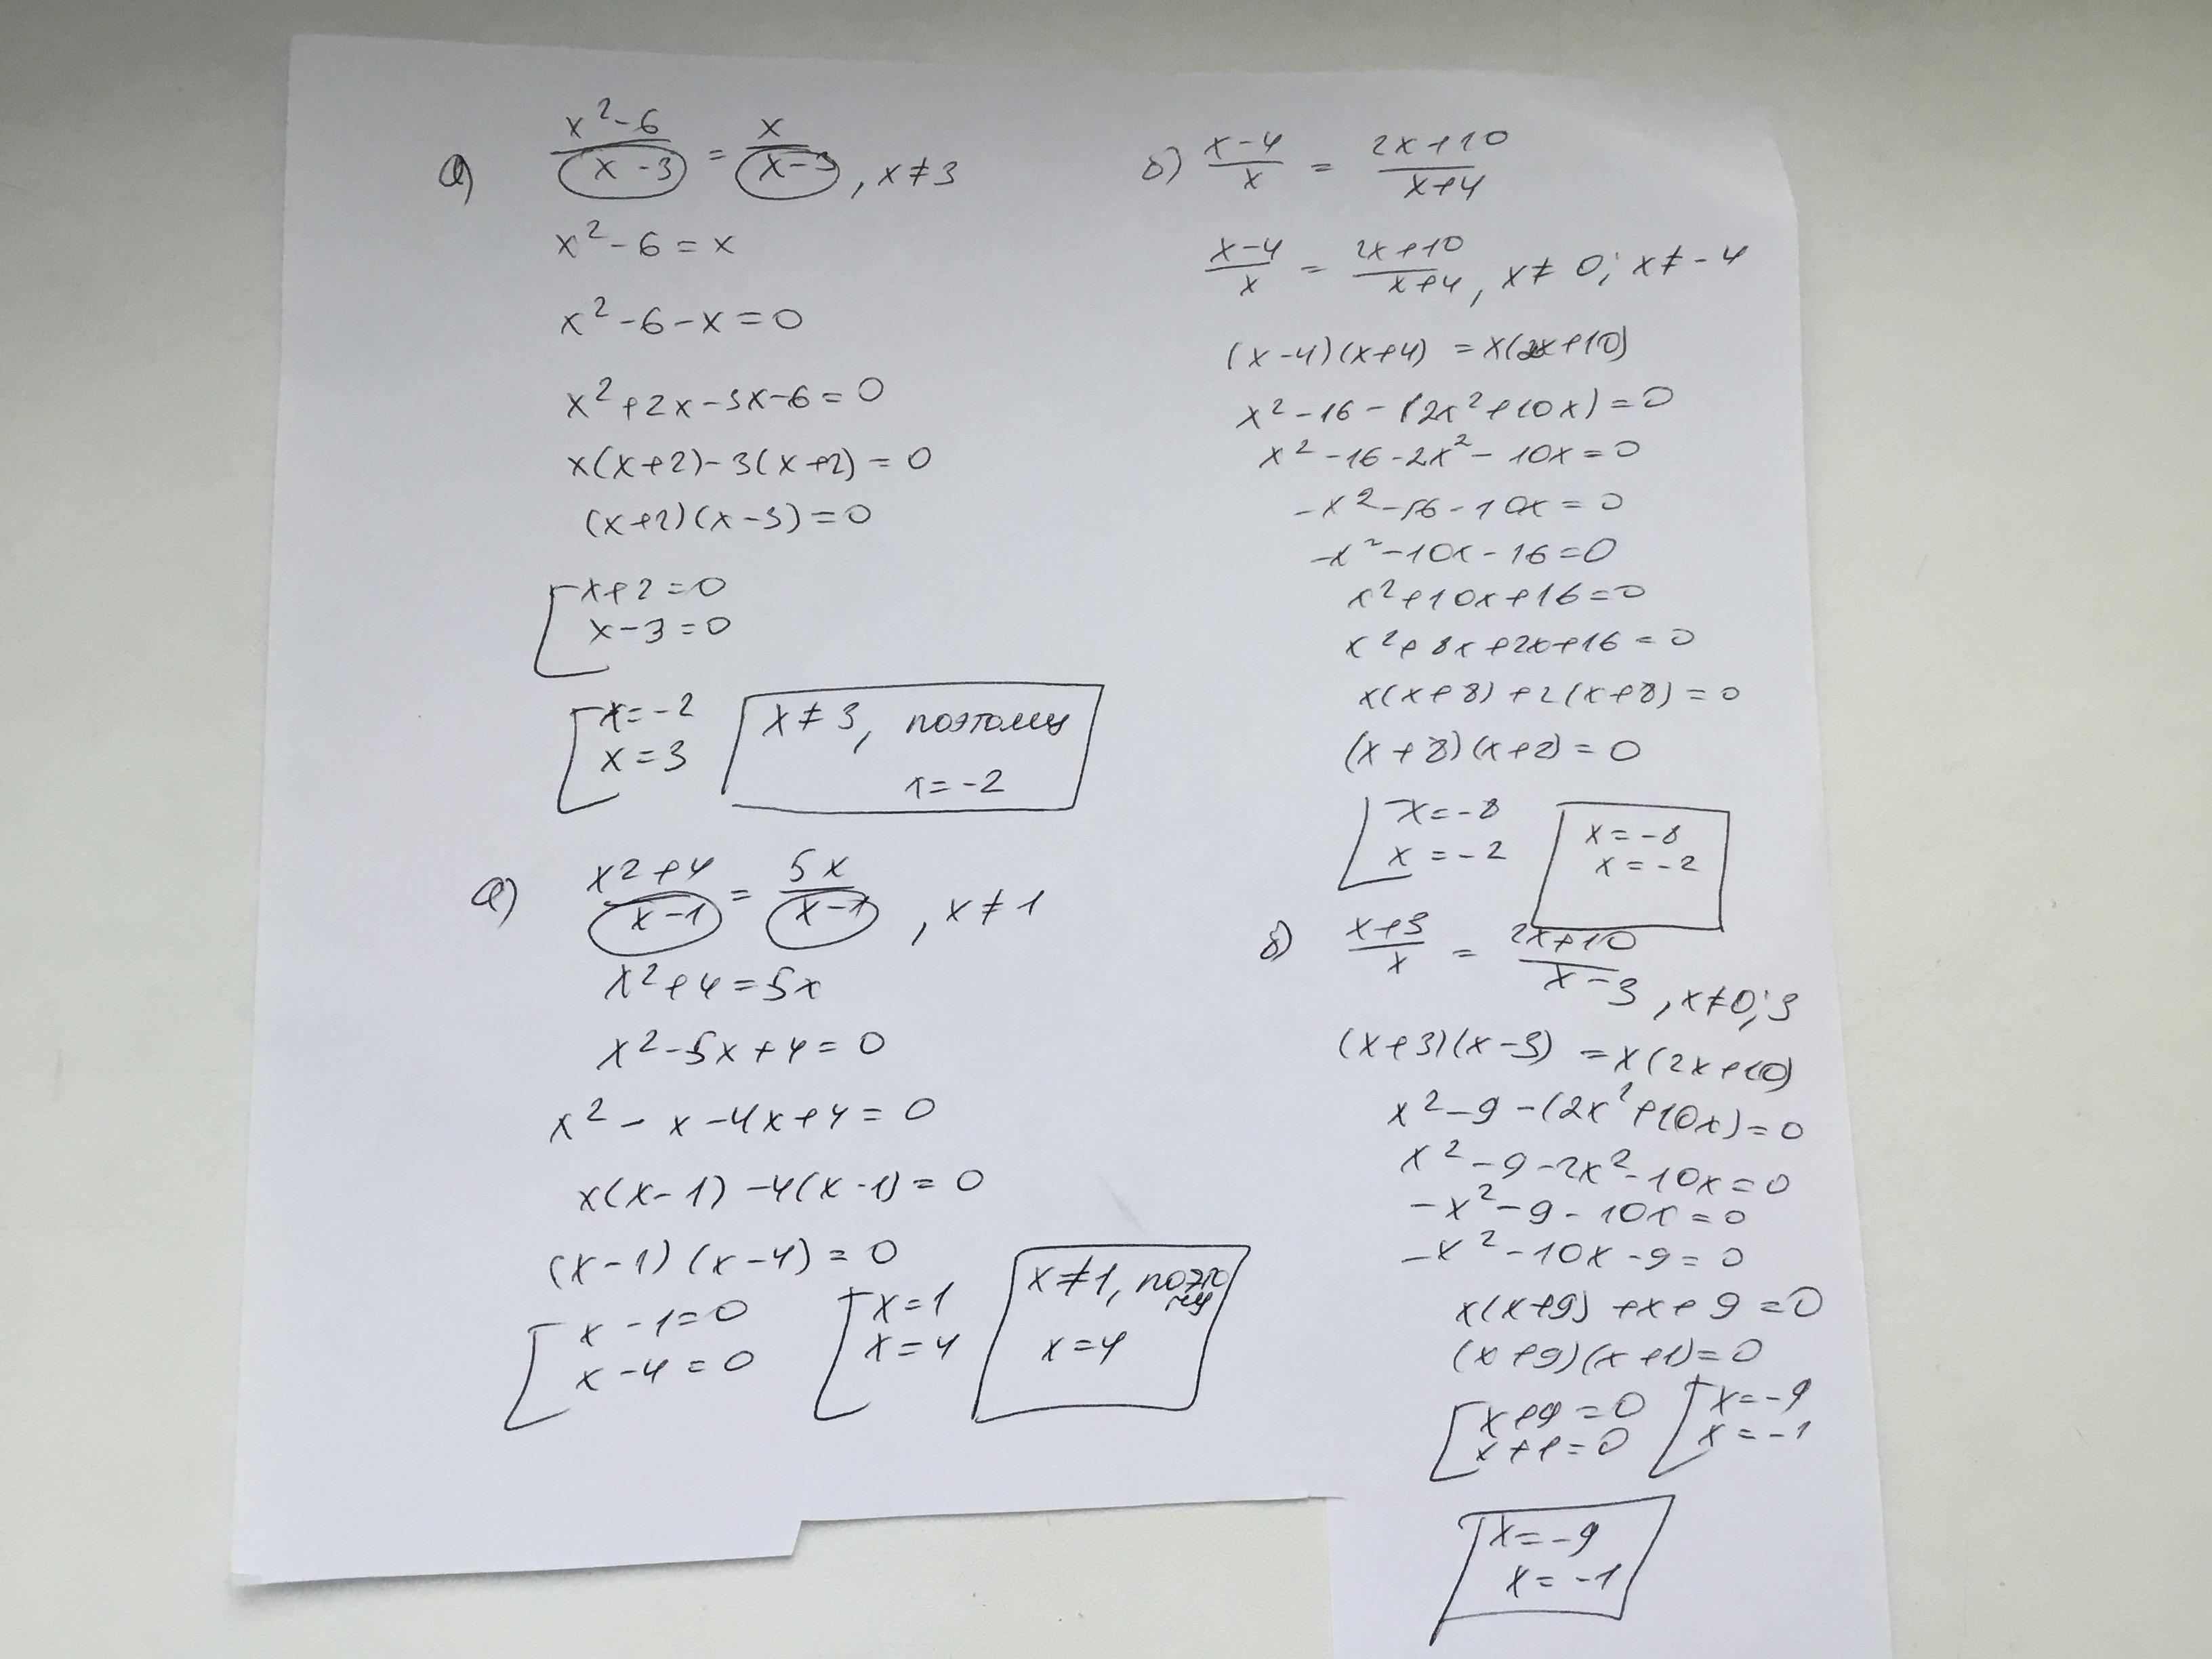 а) (x²-6)/(x-3) = x/(x-3), x≠3
x²-6=x
x²-6-x=0
x²+2x-3x-6=0
x(x+2)-3(x+2)=0
(x+2)(x-3)=0
x+2=0
x-3=0
x=-2
x=3
x≠3, поэтому
x=-2
а) (x²+4)/(x-1) = 5x/(x-1), x≠1
x²+4=5x
x²-5x+4=0
x²-x-4x+4=0
x(x-1)-4(x-1)=0
(x-1)(x-4)=0
x-1=0
x-4=0
x=1
x=4
x≠1, поэто
му
x=4
б) (x-4)/x = (2x+10)/(x+4)
(x-4)/x = (2x+10)/(x+4), x≠0; x≠-4
(x-4)(x+4)=x(2x+10)
x²-16-(2x²+10x)=0
x²-16-2x²-10x=0
-x²-16-10x=0
-x²-10x-16=0
x²+10x+16=0
x²+8x+2x+16=0
x(x+8)+2(x+8)=0
(x+8)(x+2)=0
x=-8
x=-2
x=-8
x=-2
б) (x+3)/x = (2x+10)/(x-3), x≠0;3
(x+3)(x-3)=x(2x+10)
x²-9-(2x²+10x)=0
x²-9-2x²-10x=0
-x²-9-10x=0
-x²-10x-9=0
x(x+9)+x+9=0
(x+9)(x+1)=0
x+9=0
x+1=0
x=-9
x=-1
x=-9
x=-1